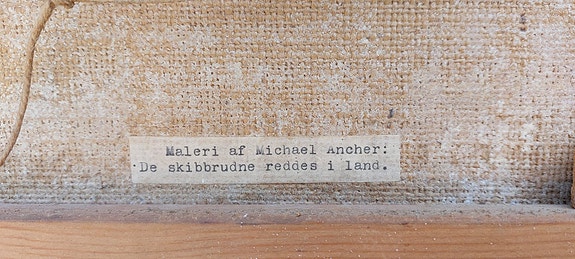 Maleri af Michael Ancher:
De skibbrudne reddes i land.